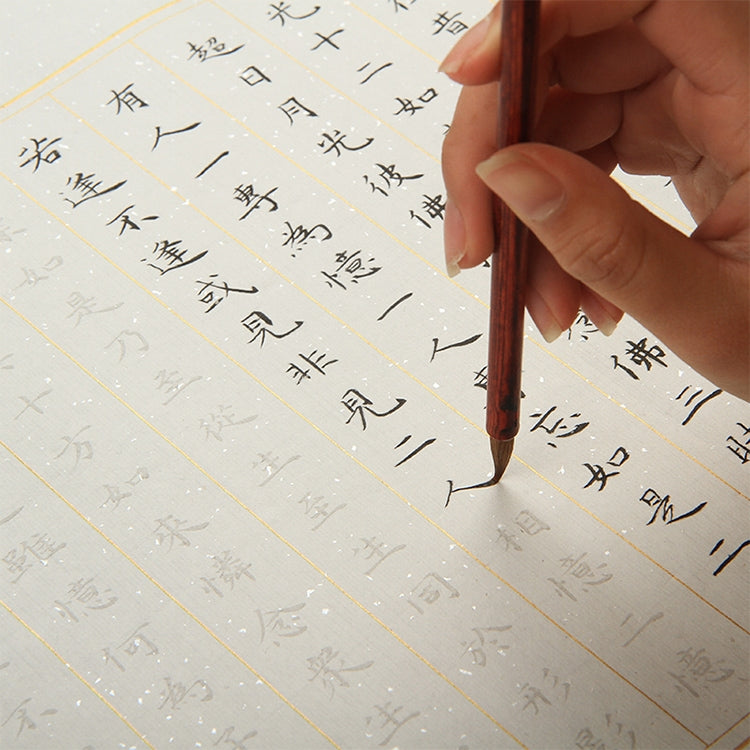 昔
光十二如
超日月光彼佛念佛三昧
有人一專為憶一人專忘如是二
若逢不逢或見非見二人相憶二憶
如是乃至從生至生同於形影
十方如來憐念眾生
雖憶何為子
不